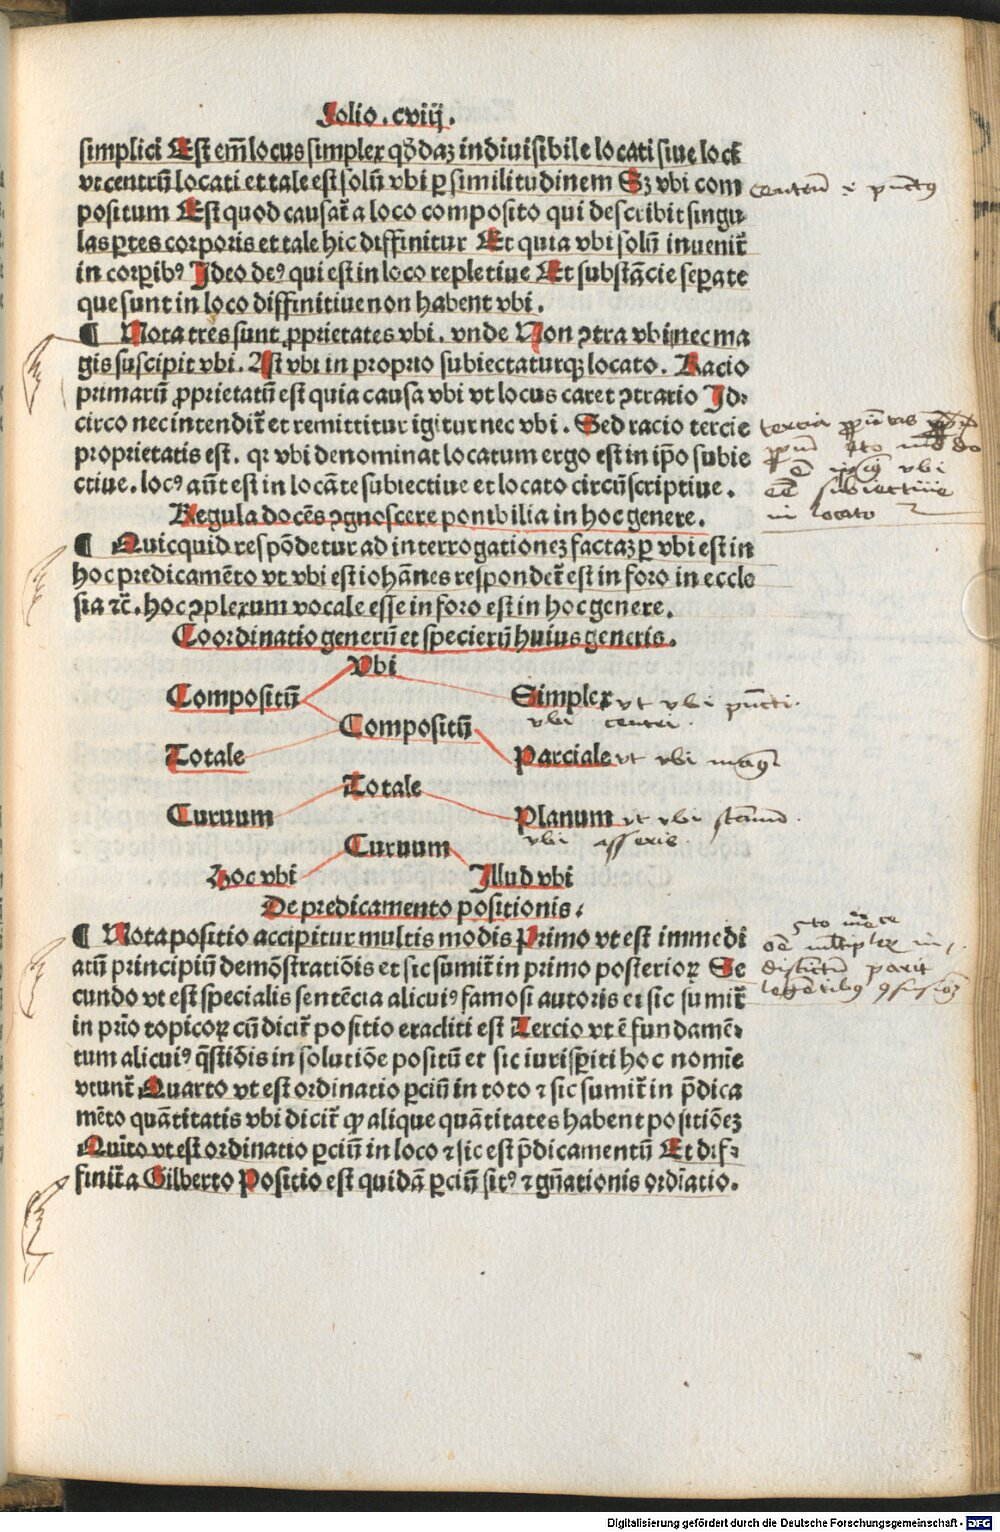 Folio . cviij .
simplici Est em̄ locus simplex qōdaz indiuisibile locati siue loci
vt centrū locati et tale est solū vbi ꝑ similitudinem Sz vbi com
centrū
positum Est quod causat̄ a loco composito qui describit singu
las ꝑtes corporis et tale hic diffinitur Et quia vbi solū inuenit̄
in corꝑibꝰ Ideo deꝰ qui est in loco repletiue Et substācie seꝑate
que sunt in loco diffinitiue non habent vbi .
¶ Nota tres sunt ꝓprietates vbi . vnde Non ꝯtra vbi nec ma
gis suscipit vbi . Ast vbi in proprio subiectaturqꝫ locato . Racio
primarū ꝓprietatū est quia causa vbi vt locus caret ꝯtrario Id⸗
circo nec intendit̄ et remittitur igitur nec vbi . Sed racio tercie
proprietatis est . qꝛ vbi denominat locatum ergo est in ip̄o subie
ctiue . locꝰ aūt est in locāte subiectiue et locato circūscriptiue .
vbi
subiectiue
in locato
Regula docēs ꝯgnoscere ponibilia in hoc genere .
¶ Quicquid respōdetur ad interrogationez factaz ꝑ vbi est in
hoc predicamēto vt vbi est iohānes respondet̄ est in foro in eccle
sia ⁊c̄ . hoc ꝯplexum vocale esse in foro est in hoc genere .
Coordinatio generū et specierū huius generis .
Vbi
Compositū Simplex vt vbi pūcti .
vbi centri .
Compositū
Totale Parciale vt vbi
Totale
Curuum Planum vt vbi
vbi asseris
Curuum
Hoc vbi Illud vbi
De predicamento positionis .
¶ Nota positio accipitur multis modis Primo vt est immedi
atū principiū demōstratiōis et sic sumit̄ in primo posterioꝝ Se
cundo vt est specialis sentēcia alicuiꝰ famosi autoris et sic sumit̄
in prīo topicoꝝ cū dicit̄ positio eracliti est Tercio vt ē fundamē⸗
tum alicuiꝰ q̄stiōis in solutiōe positū et sic iurisꝑiti hoc nomīe
vtunt̄ Quarto vt est ordinatio ꝑciū in toto ⁊ sic sumit̄ in p̄dica
mēto quātitatis vbi dicit̄ ꝙ alique quātitates habent positiōez
Quīto vt est ordinatio ꝑciū in loco ⁊ sic est p̄dicamentū Et dif⸗
finit̄ a Gilberto Positio est quidā ꝑciū sitꝰ ⁊ gn̄ationis ordīatio .
Digitalisierung gefördert durch die Deutsche Forschungsgemeinschaft - DFG